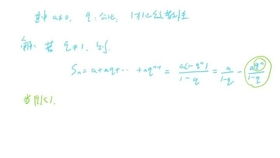 其中 a≠0, q: 公比,
解: 若 q≠1, 则
Sₙ = a + aq + ⋯ + aqⁿ⁻¹ = a(1-qⁿ)/(1-q) = a/(1-q) - aqⁿ/(1-q)
当 |q|<1,